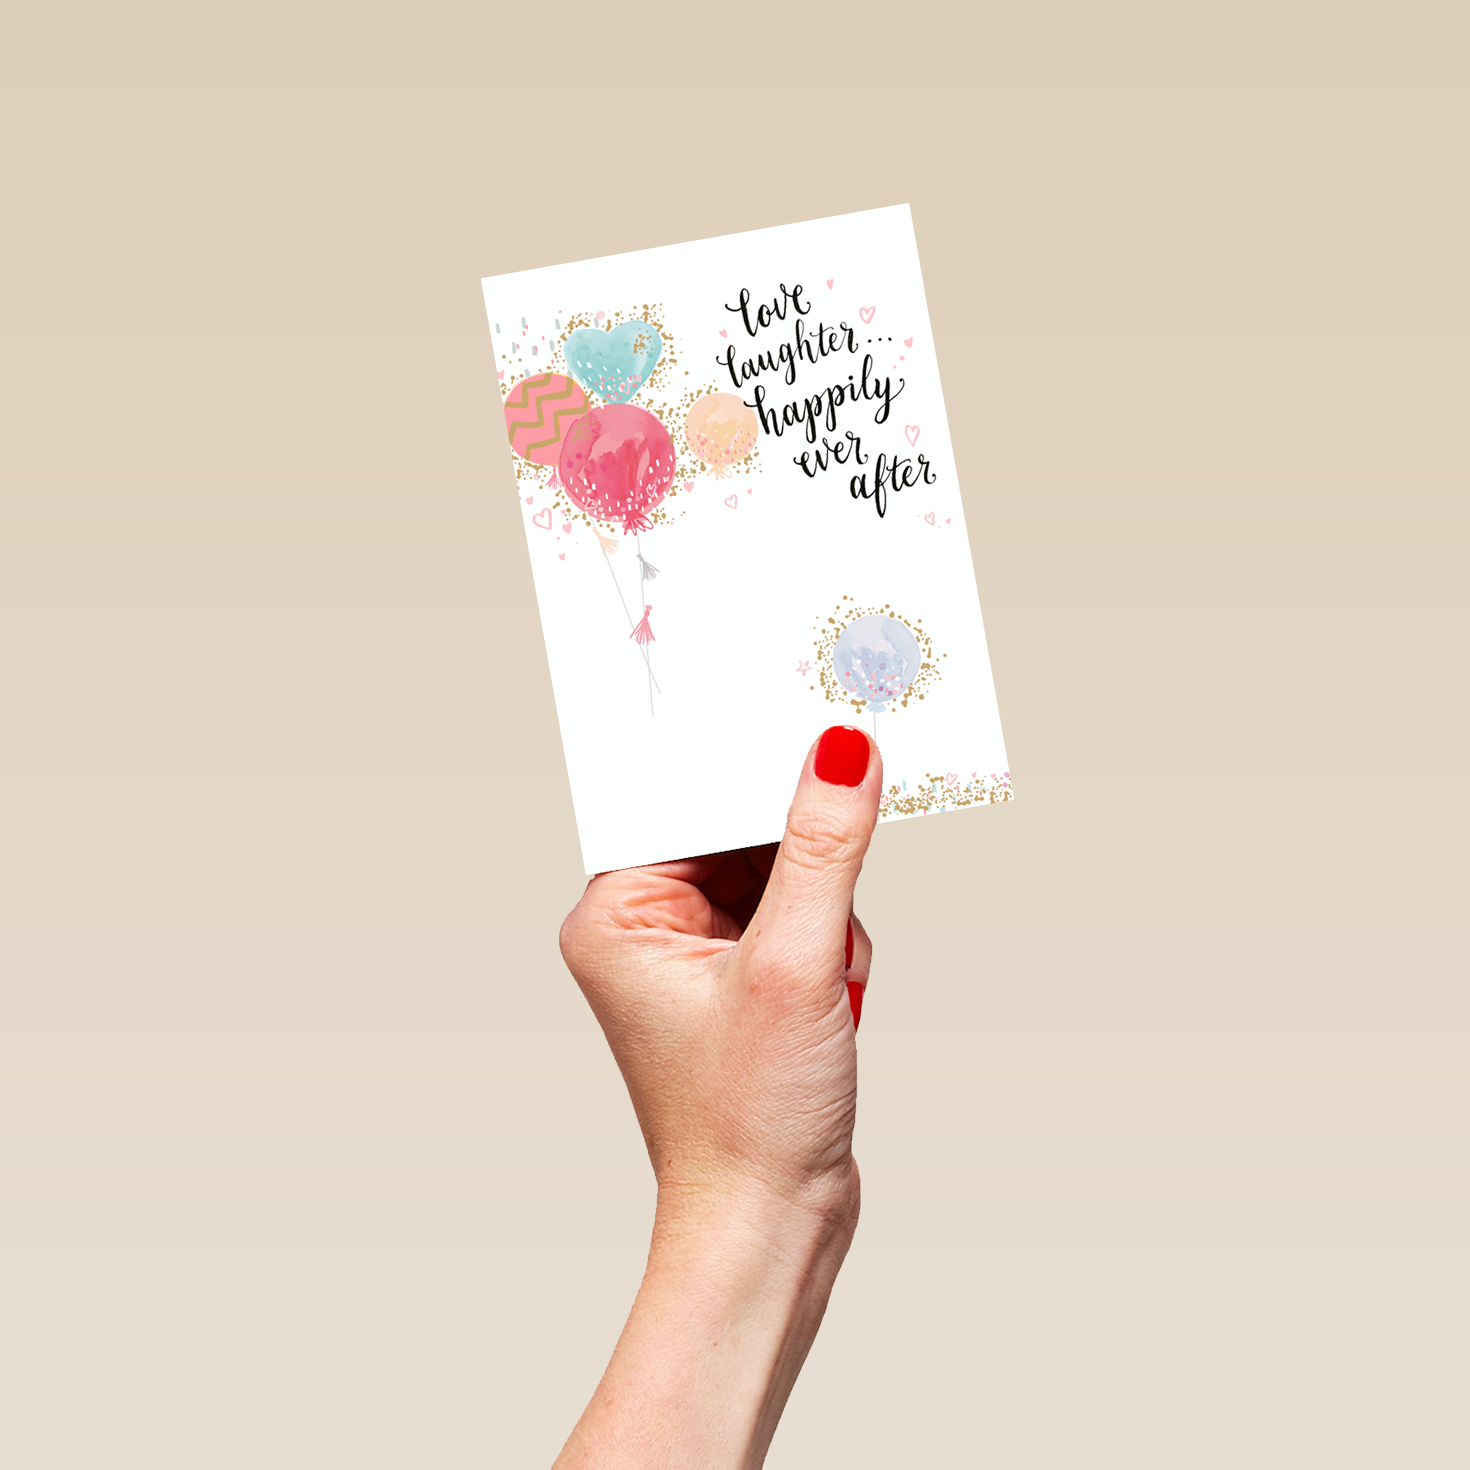 love
laughter...
happily
ever
after